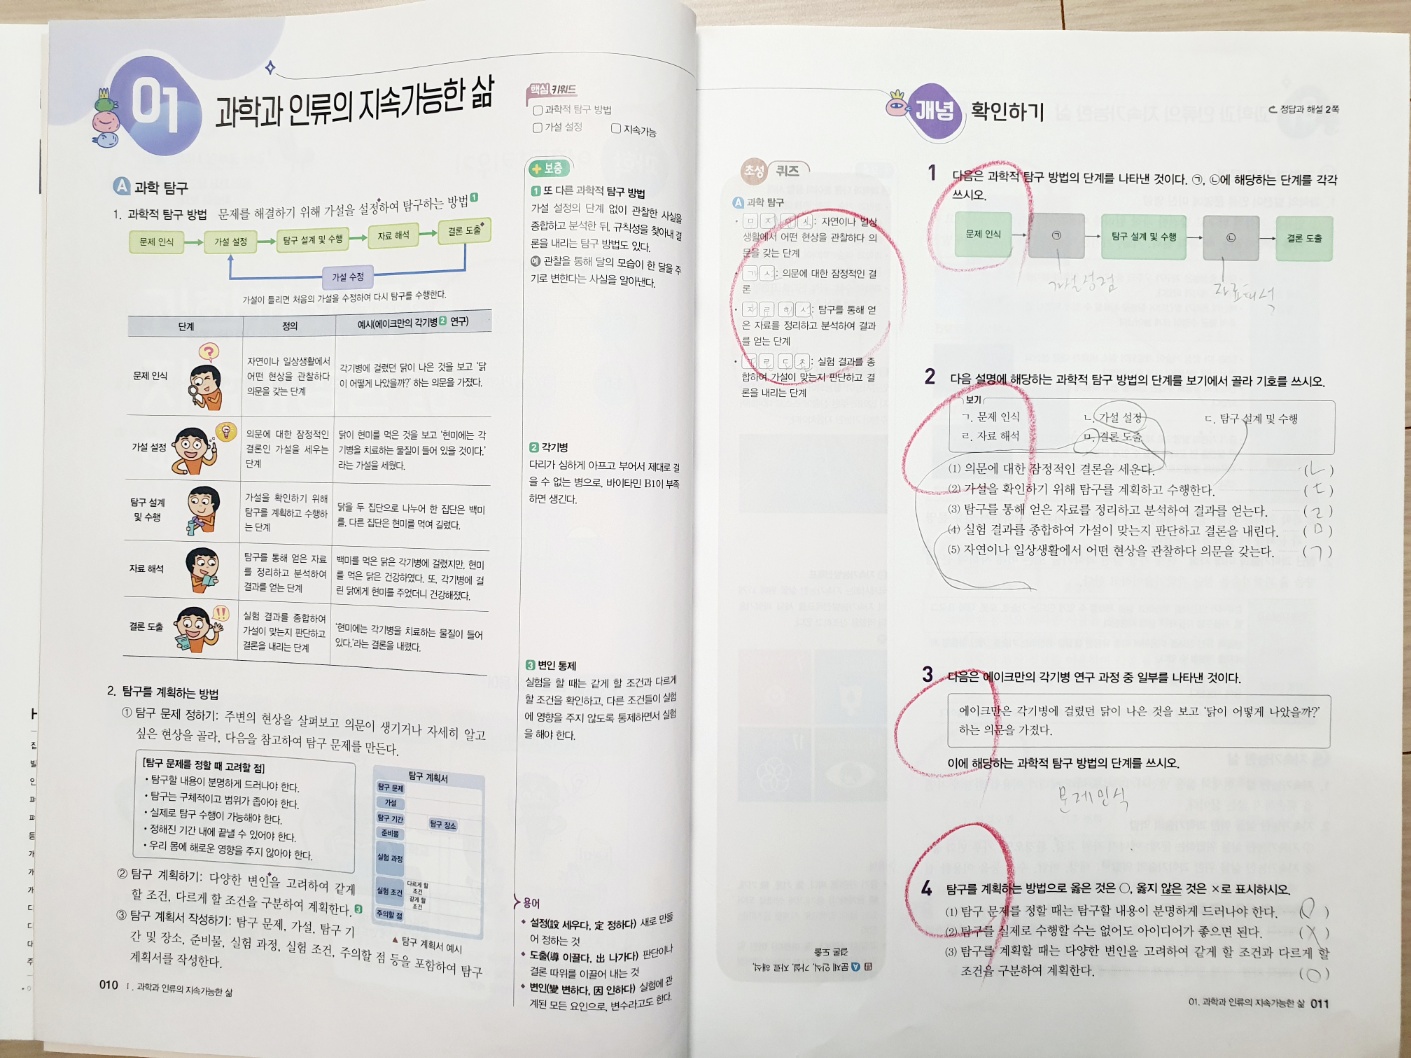 01
과학과 인류의 지속가능한 삶
핵심 키워드
과학적 탐구 방법
가설 설정
지속가능
A 과학 탐구
1. 과학적 탐구 방법 문제를 해결하기 위해 가설을 설정하여 탐구하는 방법 1
문제 인식
가설 설정
탐구 설계 및 수행
자료 해석
결론 도출
가설 수정
가설이 틀리면 처음의 가설을 수정하여 다시 탐구를 수행한다.
단계 정의 예시(에이크만의 각기병 2 연구)
문제 인식
자연이나 일상생활에서
어떤 현상을 관찰하다
의문을 갖는 단계
각기병에 걸렸던 닭이 나은 것을 보고 '닭
이 어떻게 나았을까?' 하는 의문을 가졌다.
가설 설정
의문에 대한 잠정적인
결론인 가설을 세우는
단계
닭이 현미를 먹은 것을 보고 '현미에는 각
기병을 치료하는 물질이 들어 있을 것이다.'
라는 가설을 세웠다.
탐구 설계
및 수행
가설을 확인하기 위해
탐구를 계획하고 수행하
는 단계
닭을 두 집단으로 나누어 한 집단은 백미
를, 다른 집단은 현미를 먹여 길렀다.
자료 해석
탐구를 통해 얻은 자료
를 정리하고 분석하여
결과를 얻는 단계
백미를 먹은 닭은 각기병에 걸렸지만, 현미
를 먹은 닭은 건강하였다. 또, 각기병에 걸
린 닭에게 현미를 주었더니 건강해졌다.
결론 도출
실험 결과를 종합하여
가설이 맞는지 판단하고
결론을 내리는 단계
'현미에는 각기병을 치료하는 물질이 들어
있다.'라는 결론을 내렸다.
2. 탐구를 계획하는 방법
① 탐구 문제 정하기: 주변의 현상을 살펴보고 의문이 생기거나 자세히 알고
싶은 현상을 골라, 다음을 참고하여 탐구 문제를 만든다.
[탐구 문제를 정할 때 고려할 점]
• 탐구할 내용이 분명하게 드러나야 한다.
• 탐구는 구체적이고 범위가 좁아야 한다.
• 실제로 탐구 수행이 가능해야 한다.
• 정해진 기간 내에 끝낼 수 있어야 한다.
• 우리 몸에 해로운 영향을 주지 않아야 한다.
탐구 계획서
탐구 문제
가설
탐구 기간
탐구 장소
준비물
실험 과정
실험 조건
다르게 할
조건
같게 할
조건
주의할 점
▲ 탐구 계획서 예시
② 탐구 계획하기: 다양한 변인을 고려하여 같게
할 조건, 다르게 할 조건을 구분하여 계획한다. 3
③ 탐구 계획서 작성하기: 탐구 문제, 가설, 탐구 기
간 및 장소, 준비물, 실험 과정, 실험 조건, 주의할 점 등을 포함하여 탐구
계획서를 작성한다.
010 I. 과학과 인류의 지속가능한 삶
+ 보충
1 또 다른 과학적 탐구 방법
가설 설정의 단계 없이 관찰한 사실을
종합하고 분석한 뒤, 규칙성을 찾아내 결
론을 내리는 탐구 방법도 있다.
예 관찰을 통해 달의 모습이 한 달을 주
기로 변한다는 사실을 알아낸다.
2 각기병
다리가 심하게 아프고 부어서 제대로 걸
을 수 없는 병으로, 바이타민 B1이 부족
하면 생긴다.
3 변인 통제
실험을 할 때는 같게 할 조건과 다르게
할 조건을 확인하고, 다른 조건들이 실험
에 영향을 주지 않도록 통제하면서 실험
을 해야 한다.
용어
설정(設 세우다, 定 정하다) 새로 만들
어 정하는 것
도출(導 이끌다, 出 나가다) 판단이나
결론 따위를 이끌어 내는 것
변인(變 변하다, 因 인하다) 실험에 관
계된 모든 요인으로, 변수라고도 한다.
개념 확인하기
정답과 해설 2쪽
초성 퀴즈
A 과학 탐구
• ㅁ ㅈ ㅇ ㅅ: 자연이나 일상
생활에서 어떤 현상을 관찰하다 의
문을 갖는 단계
• ㄱ ㅅ: 의문에 대한 잠정적인 결
론
• ㅈ ㄹ ㅎ ㅅ: 탐구를 통해 얻
은 자료를 정리하고 분석하여 결과
를 얻는 단계
• ㄱ ㄹ ㄷ ㅊ: 실험 결과를 종
합하여 가설이 맞는지 판단하고 결
론을 내리는 단계
답 A 문제 인식, 가설, 자료 해석,
결론 도출
1 다음은 과학적 탐구 방법의 단계를 나타낸 것이다. ㉠, ㉡에 해당하는 단계를 각각
쓰시오.
문제 인식
㉠
탐구 설계 및 수행
㉡
결론 도출
가설설정
자료해석
2 다음 설명에 해당하는 과학적 탐구 방법의 단계를 보기에서 골라 기호를 쓰시오.
보기
ㄱ. 문제 인식 ㄴ. 가설 설정 ㄷ. 탐구 설계 및 수행
ㄹ. 자료 해석 ㅁ. 결론 도출
(1) 의문에 대한 잠정적인 결론을 세운다. (ㄴ)
(2) 가설을 확인하기 위해 탐구를 계획하고 수행한다. (ㄷ)
(3) 탐구를 통해 얻은 자료를 정리하고 분석하여 결과를 얻는다. (ㄹ)
(4) 실험 결과를 종합하여 가설이 맞는지 판단하고 결론을 내린다. (ㅁ)
(5) 자연이나 일상생활에서 어떤 현상을 관찰하다 의문을 갖는다. (ㄱ)
3 다음은 에이크만의 각기병 연구 과정 중 일부를 나타낸 것이다.
에이크만은 각기병에 걸렸던 닭이 나은 것을 보고 '닭이 어떻게 나았을까?'
하는 의문을 가졌다.
이에 해당하는 과학적 탐구 방법의 단계를 쓰시오.
문제인식
4 탐구를 계획하는 방법으로 옳은 것은 ○, 옳지 않은 것은 ×로 표시하시오.
(1) 탐구 문제를 정할 때는 탐구할 내용이 분명하게 드러나야 한다. (○)
(2) 탐구를 실제로 수행할 수는 없어도 아이디어가 좋으면 된다. (×)
(3) 탐구를 계획할 때는 다양한 변인을 고려하여 같게 할 조건과 다르게 할
조건을 구분하여 계획한다. (○)
01. 과학과 인류의 지속가능한 삶 011